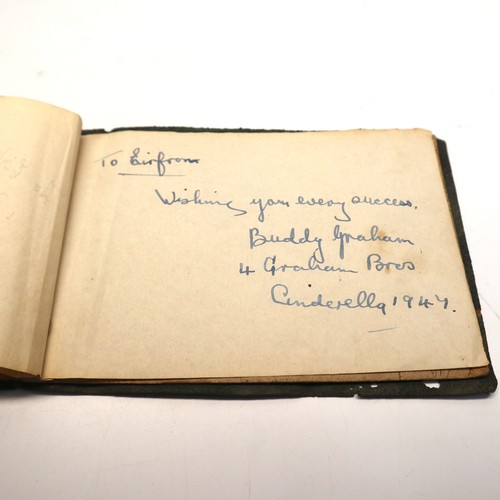 To Eirfrom
Wishing you every success.
Buddy Graham
4 Graham Bros
Cinderella 1947.